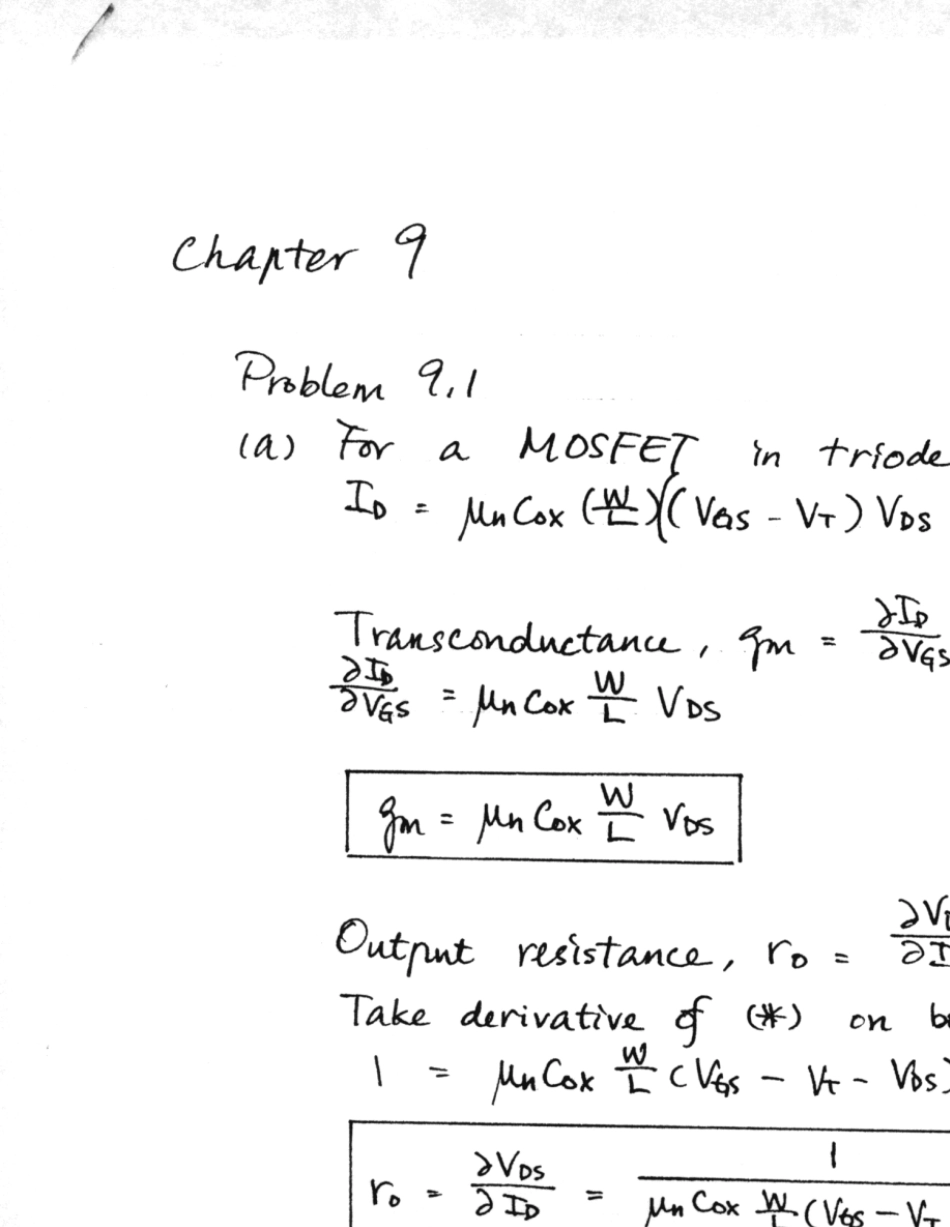 Chapter 9
Problem 9.1
(a) For a MOSFET in triode
I_D = μn Cox (W/L)((VGS - VT) VDS
Transconductance, gm = ∂ID/∂VGS
∂ID/∂VGS = μn Cox W/L VDS
gm = μn Cox W/L VDS
Output resistance, ro =
Take derivative of (*) on
1 = μn Cox W/L (VGS - VT - VDS)
ro = ∂VDS/∂ID = 1/μn Cox W/L (VGS - VT